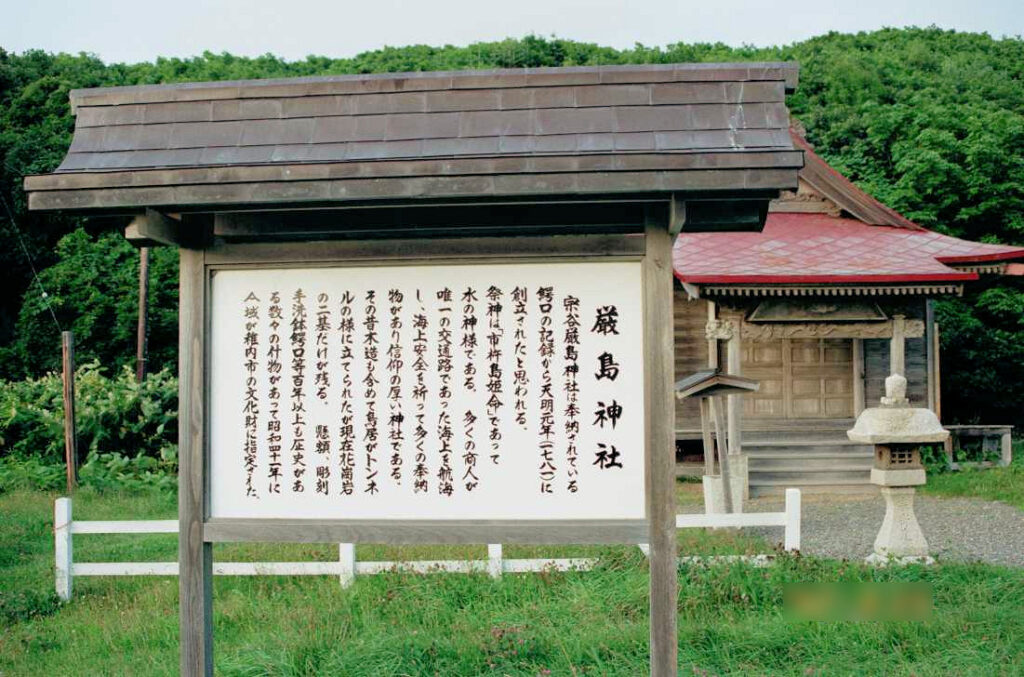 厳島神社
宗谷厳島神社は奉納されている
鰐口の記録から天明元年(一七八一)に
創立されたと思われる。
祭神は、「市杵島姫命」であって
水の神様である。 多くの商人が
唯一の交通路であった海上を航海
し、海上安全を祈って多くの奉納
物があり信仰の厚い神社である。
その昔木造も含めて鳥居がトンネ
ルの様に立てられたが現在花崗岩
の二基だけが残る。 懸額、彫刻
手洗鉢鰐口等百年以上も歴史があ
る数々の什物があって昭和四十一年に
全域が稚内市の文化財に指定された。